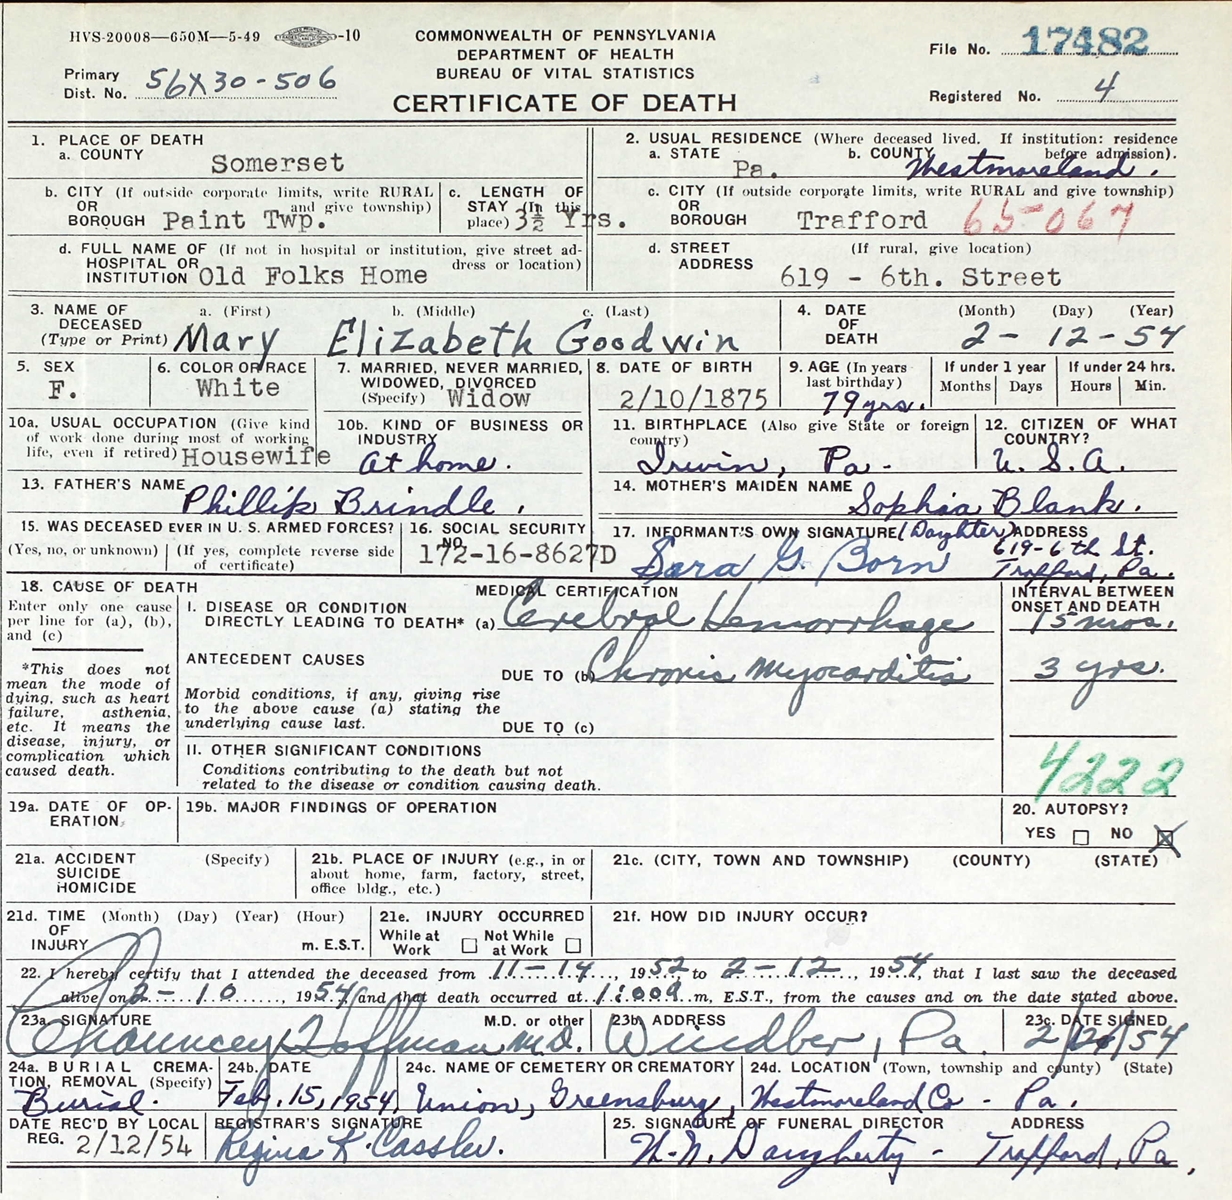 HVS-20008—650M—5-49 -10
COMMONWEALTH OF PENNSYLVANIA
DEPARTMENT OF HEALTH
BUREAU OF VITAL STATISTICS
CERTIFICATE OF DEATH
Primary Dist. No. 56X30-506
File No. 17482
Registered No. 4
1. PLACE OF DEATH
a. COUNTY Somerset
2. USUAL RESIDENCE (Where deceased lived. If institution: residence before admission).
a. STATE Pa. b. COUNTY Westmoreland.
b. CITY (If outside corporate limits, write RURAL and give township) OR BOROUGH Paint Twp.
c. LENGTH OF STAY (In this place) 3½ Yrs.
c. CITY (If outside corporate limits, write RURAL and give township) OR BOROUGH Trafford 65-067
d. FULL NAME OF (If not in hospital or institution, give street address or location) HOSPITAL OR INSTITUTION Old Folks Home
d. STREET ADDRESS (If rural, give location) 619 - 6th. Street
3. NAME OF DECEASED (Type or Print)
a. (First) b. (Middle) c. (Last)
Mary Elizabeth Goodwin
4. DATE OF DEATH (Month) (Day) (Year)
2- 12-54
5. SEX F.
6. COLOR OR RACE White
7. MARRIED, NEVER MARRIED, WIDOWED, DIVORCED (Specify) Widow
8. DATE OF BIRTH 2/10/1875
9. AGE (In years last birthday) 79 yrs.
If under 1 year Months Days
If under 24 hrs. Hours Min.
10a. USUAL OCCUPATION (Give kind of work done during most of working life, even if retired) Housewife
10b. KIND OF BUSINESS OR INDUSTRY At home.
11. BIRTHPLACE (Also give State or foreign country) Irwin, Pa-
12. CITIZEN OF WHAT COUNTRY? U.S.A.
13. FATHER'S NAME Phillip Brindle,
14. MOTHER'S MAIDEN NAME Sophia Blank.
15. WAS DECEASED EVER IN U. S. ARMED FORCES?
(Yes, no, or unknown) (If yes, complete reverse side of certificate)
16. SOCIAL SECURITY NO. 172-16-8627D
17. INFORMANT'S OWN SIGNATURE (Daughter) ADDRESS
Sara G. Born 619-6th St. Trafford, Pa.
18. CAUSE OF DEATH
Enter only one cause per line for (a), (b), and (c)
*This does not mean the mode of dying, such as heart failure, asthenia, etc. It means the disease, injury, or complication which caused death.
MEDICAL CERTIFICATION
INTERVAL BETWEEN ONSET AND DEATH
I. DISEASE OR CONDITION DIRECTLY LEADING TO DEATH* (a) Cerebral Hemorrhage 15 mos.
ANTECEDENT CAUSES
DUE TO (b) Chronic Myocarditis 3 yrs.
Morbid conditions, if any, giving rise to the above cause (a) stating the underlying cause last.
DUE TO (c)
II. OTHER SIGNIFICANT CONDITIONS
Conditions contributing to the death but not related to the disease or condition causing death.
4222
19a. DATE OF OPERATION.
19b. MAJOR FINDINGS OF OPERATION
20. AUTOPSY?
YES NO X
21a. ACCIDENT SUICIDE HOMICIDE (Specify)
21b. PLACE OF INJURY (e.g., in or about home, farm, factory, street, office bldg., etc.)
21c. (CITY, TOWN AND TOWNSHIP) (COUNTY) (STATE)
21d. TIME OF INJURY (Month) (Day) (Year) (Hour) m. E.S.T.
21e. INJURY OCCURRED
While at Work Not While at Work
21f. HOW DID INJURY OCCUR?
22. I hereby certify that I attended the deceased from 11-14, 1952 to 2-12, 1954, that I last saw the deceased
alive on 2-10, 1954, and that death occurred at 1:00 a m, E.S.T., from the causes and on the date stated above.
23a. SIGNATURE M.D. or other
Chauncey Hoffman M.D.
23b. ADDRESS Windber, Pa.
23c. DATE SIGNED 2/12/54
24a. BURIAL CREMATION, REMOVAL (Specify) Burial.
24b. DATE Feb. 15, 1954,
24c. NAME OF CEMETERY OR CREMATORY Union, Greensburg,
24d. LOCATION (Town, township and county) (State) Westmoreland Co - Pa.
DATE REC'D BY LOCAL REG. 2/12/54
REGISTRAR'S SIGNATURE Regina K. Cassler.
25. SIGNATURE OF FUNERAL DIRECTOR ADDRESS
N. N. Daugherty - Trafford, Pa.